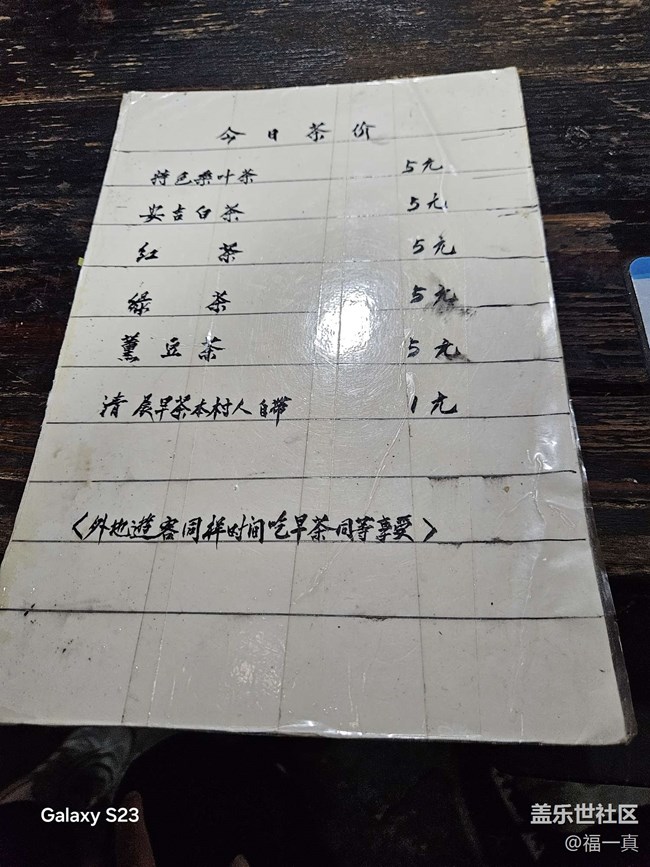 今日茶价
特色桑叶茶 5元
安吉白茶 5元
红茶 5元
绿茶 5元
薰豆茶 5元
清晨早茶本村人自带 1元
〈外地遊客同样时间吃早茶同等享受〉
Galaxy S23
盖乐世社区
@福一真